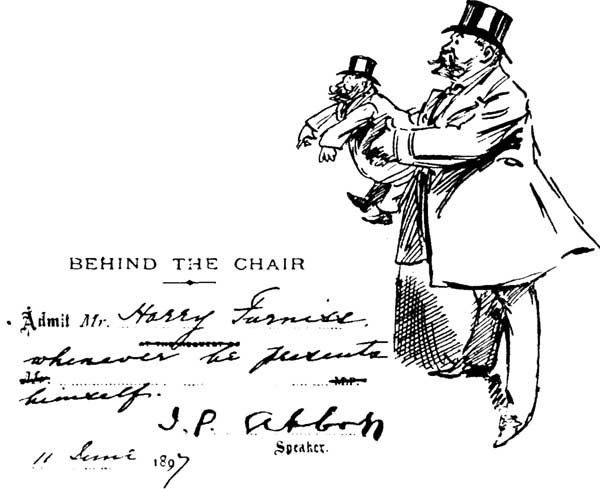 BEHIND THE CHAIR
Admit Mr. Harry Furniss.
whenever he presents
Mr. M.P.
himself.
J. P. Abbott
Speaker.
11 June 1897